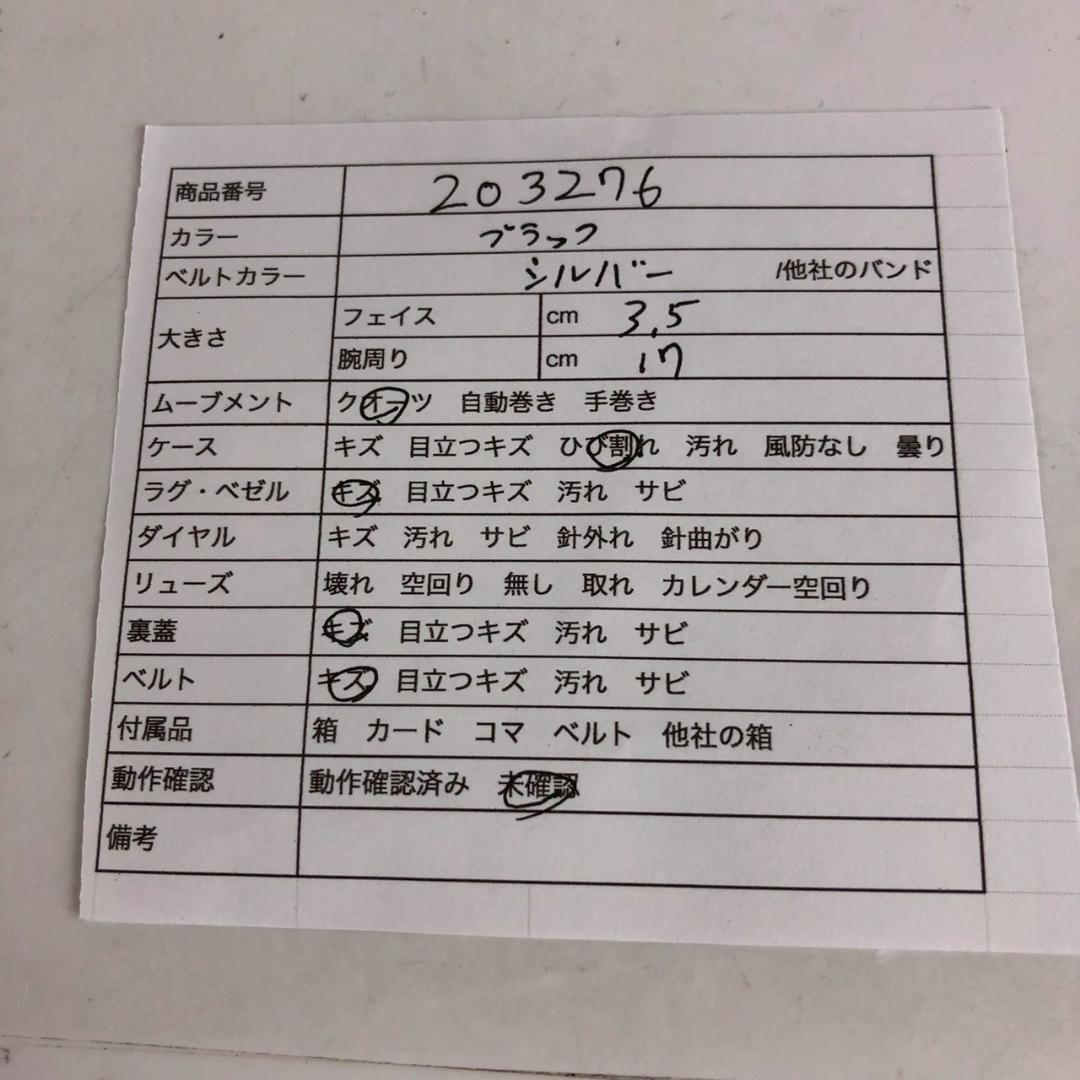 商品番号 203276
カラー ブラック
ベルトカラー シルバー /他社のバンド
大きさ フェイス cm 3.5
腕周り cm 17
ムーブメント クオーツ 自動巻き 手巻き
ケース キズ 目立つキズ ひび割れ 汚れ 風防なし 曇り
ラグ・ベゼル キズ 目立つキズ 汚れ サビ
ダイヤル キズ 汚れ サビ 針外れ 針曲がり
リューズ 壊れ 空回り 無し 取れ カレンダー空回り
裏蓋 キズ 目立つキズ 汚れ サビ
ベルト キズ 目立つキズ 汚れ サビ
付属品 箱 カード コマ ベルト 他社の箱
動作確認 動作確認済み 未確認
備考